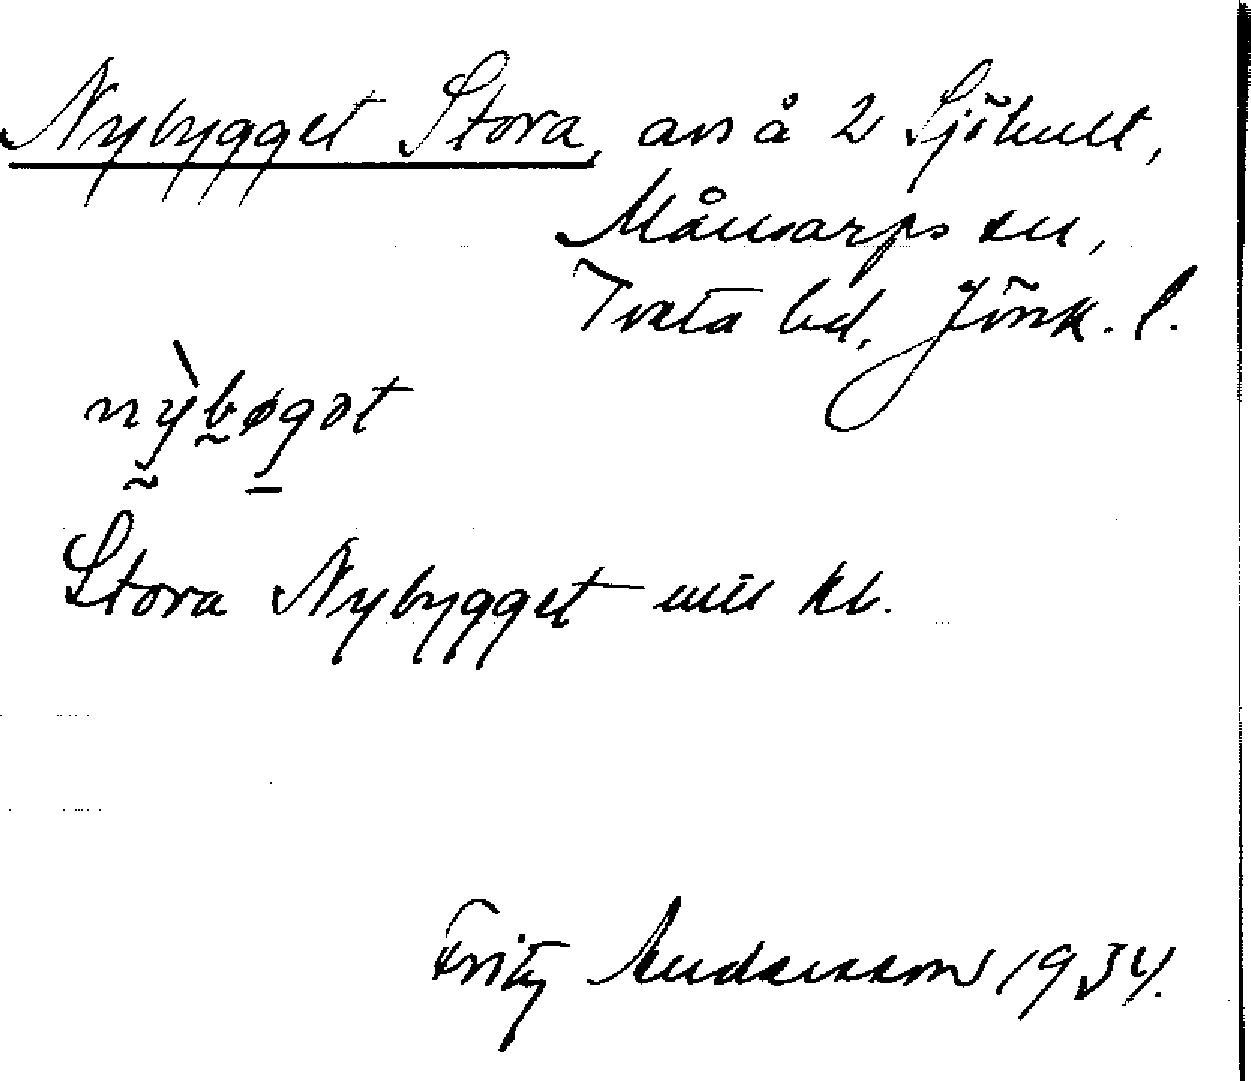 Nybygget Stora, avs å 2 Sjökult,
Månsarps sn,
Tveta hd, Jönk. l.
nỳbøgət
Stora Nybygget enl kb.
Fritz Andersson 1934.